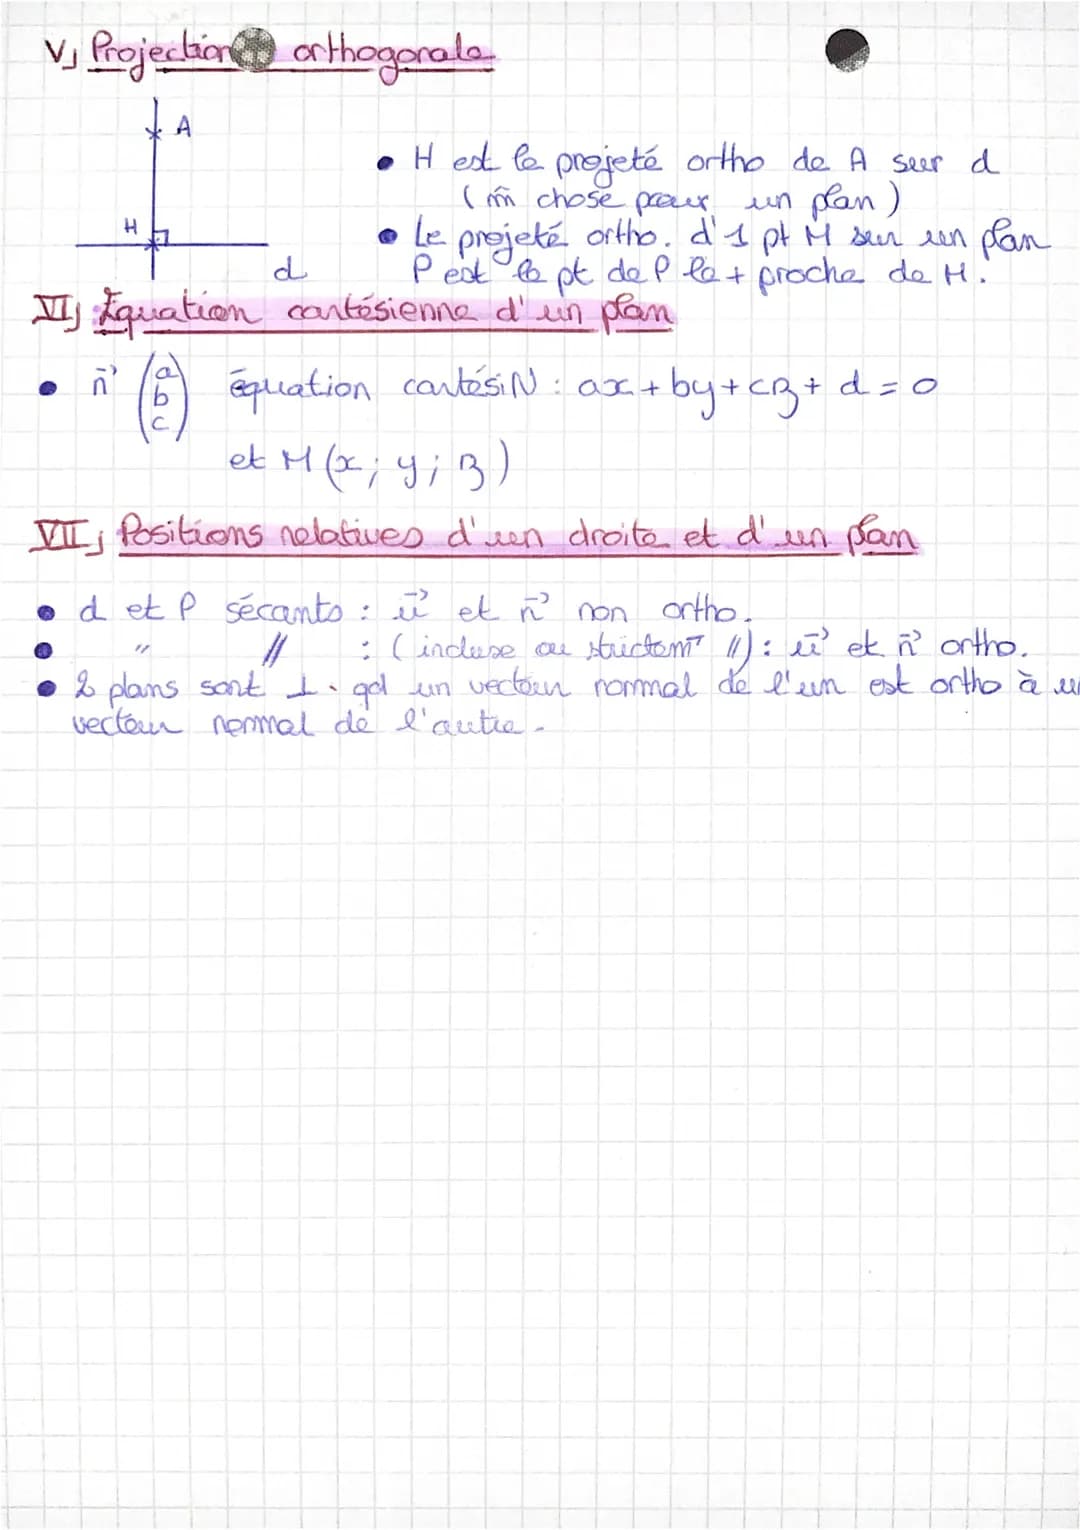 V) Projection orthogonale
A
H
d
• H est le projeté ortho de A sur d
(m̂ chose pour un plan)
• Le projeté ortho. d'1 pt M sur un plan
P est le pt de P le + proche de M.
VI) Équation cartésienne d'un plan
• n⃗ (a b c) équation cartésiN : ax + by + cz + d = 0
et M (x ; y ; z)
VII) Positions relatives d'un droite et d'un plan
• d et P sécants : u⃗ et n⃗ non ortho.
• " // : (incluse ou strictemT //) : u⃗ et n⃗ ortho.
• 2 plans sont ⊥. qd un vecteur normal de l'un est ortho à un
vecteur normal de l'autre.